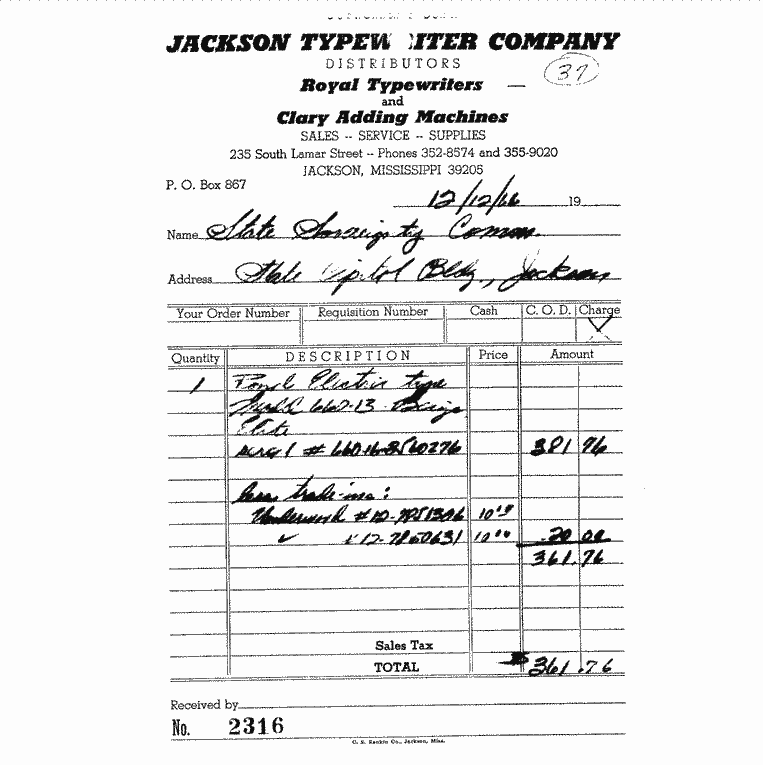 JACKSON TYPEW ITER COMPANY
DISTRIBUTORS
37
Royal Typewriters
and
Clary Adding Machines
SALES -- SERVICE -- SUPPLIES
235 South Lamar Street -- Phones 352-8574 and 355-9020
JACKSON, MISSISSIPPI 39205
P. O. Box 867
12/12/66 19
Name State Sovereignty Comm.
Address State Capitol Bldg., Jackson
Your Order Number Requisition Number Cash C. O. D. Charge
Quantity DESCRIPTION Price Amount
1 Electric type
660-13 Beige
Elite
# 381 76
less trade-ins:
Underwood # 10 00
✓ 10 00 20 00
361.76
Sales Tax
TOTAL $361.76
Received by
No. 2316
C. S. Rankin Co., Jackson, Miss.